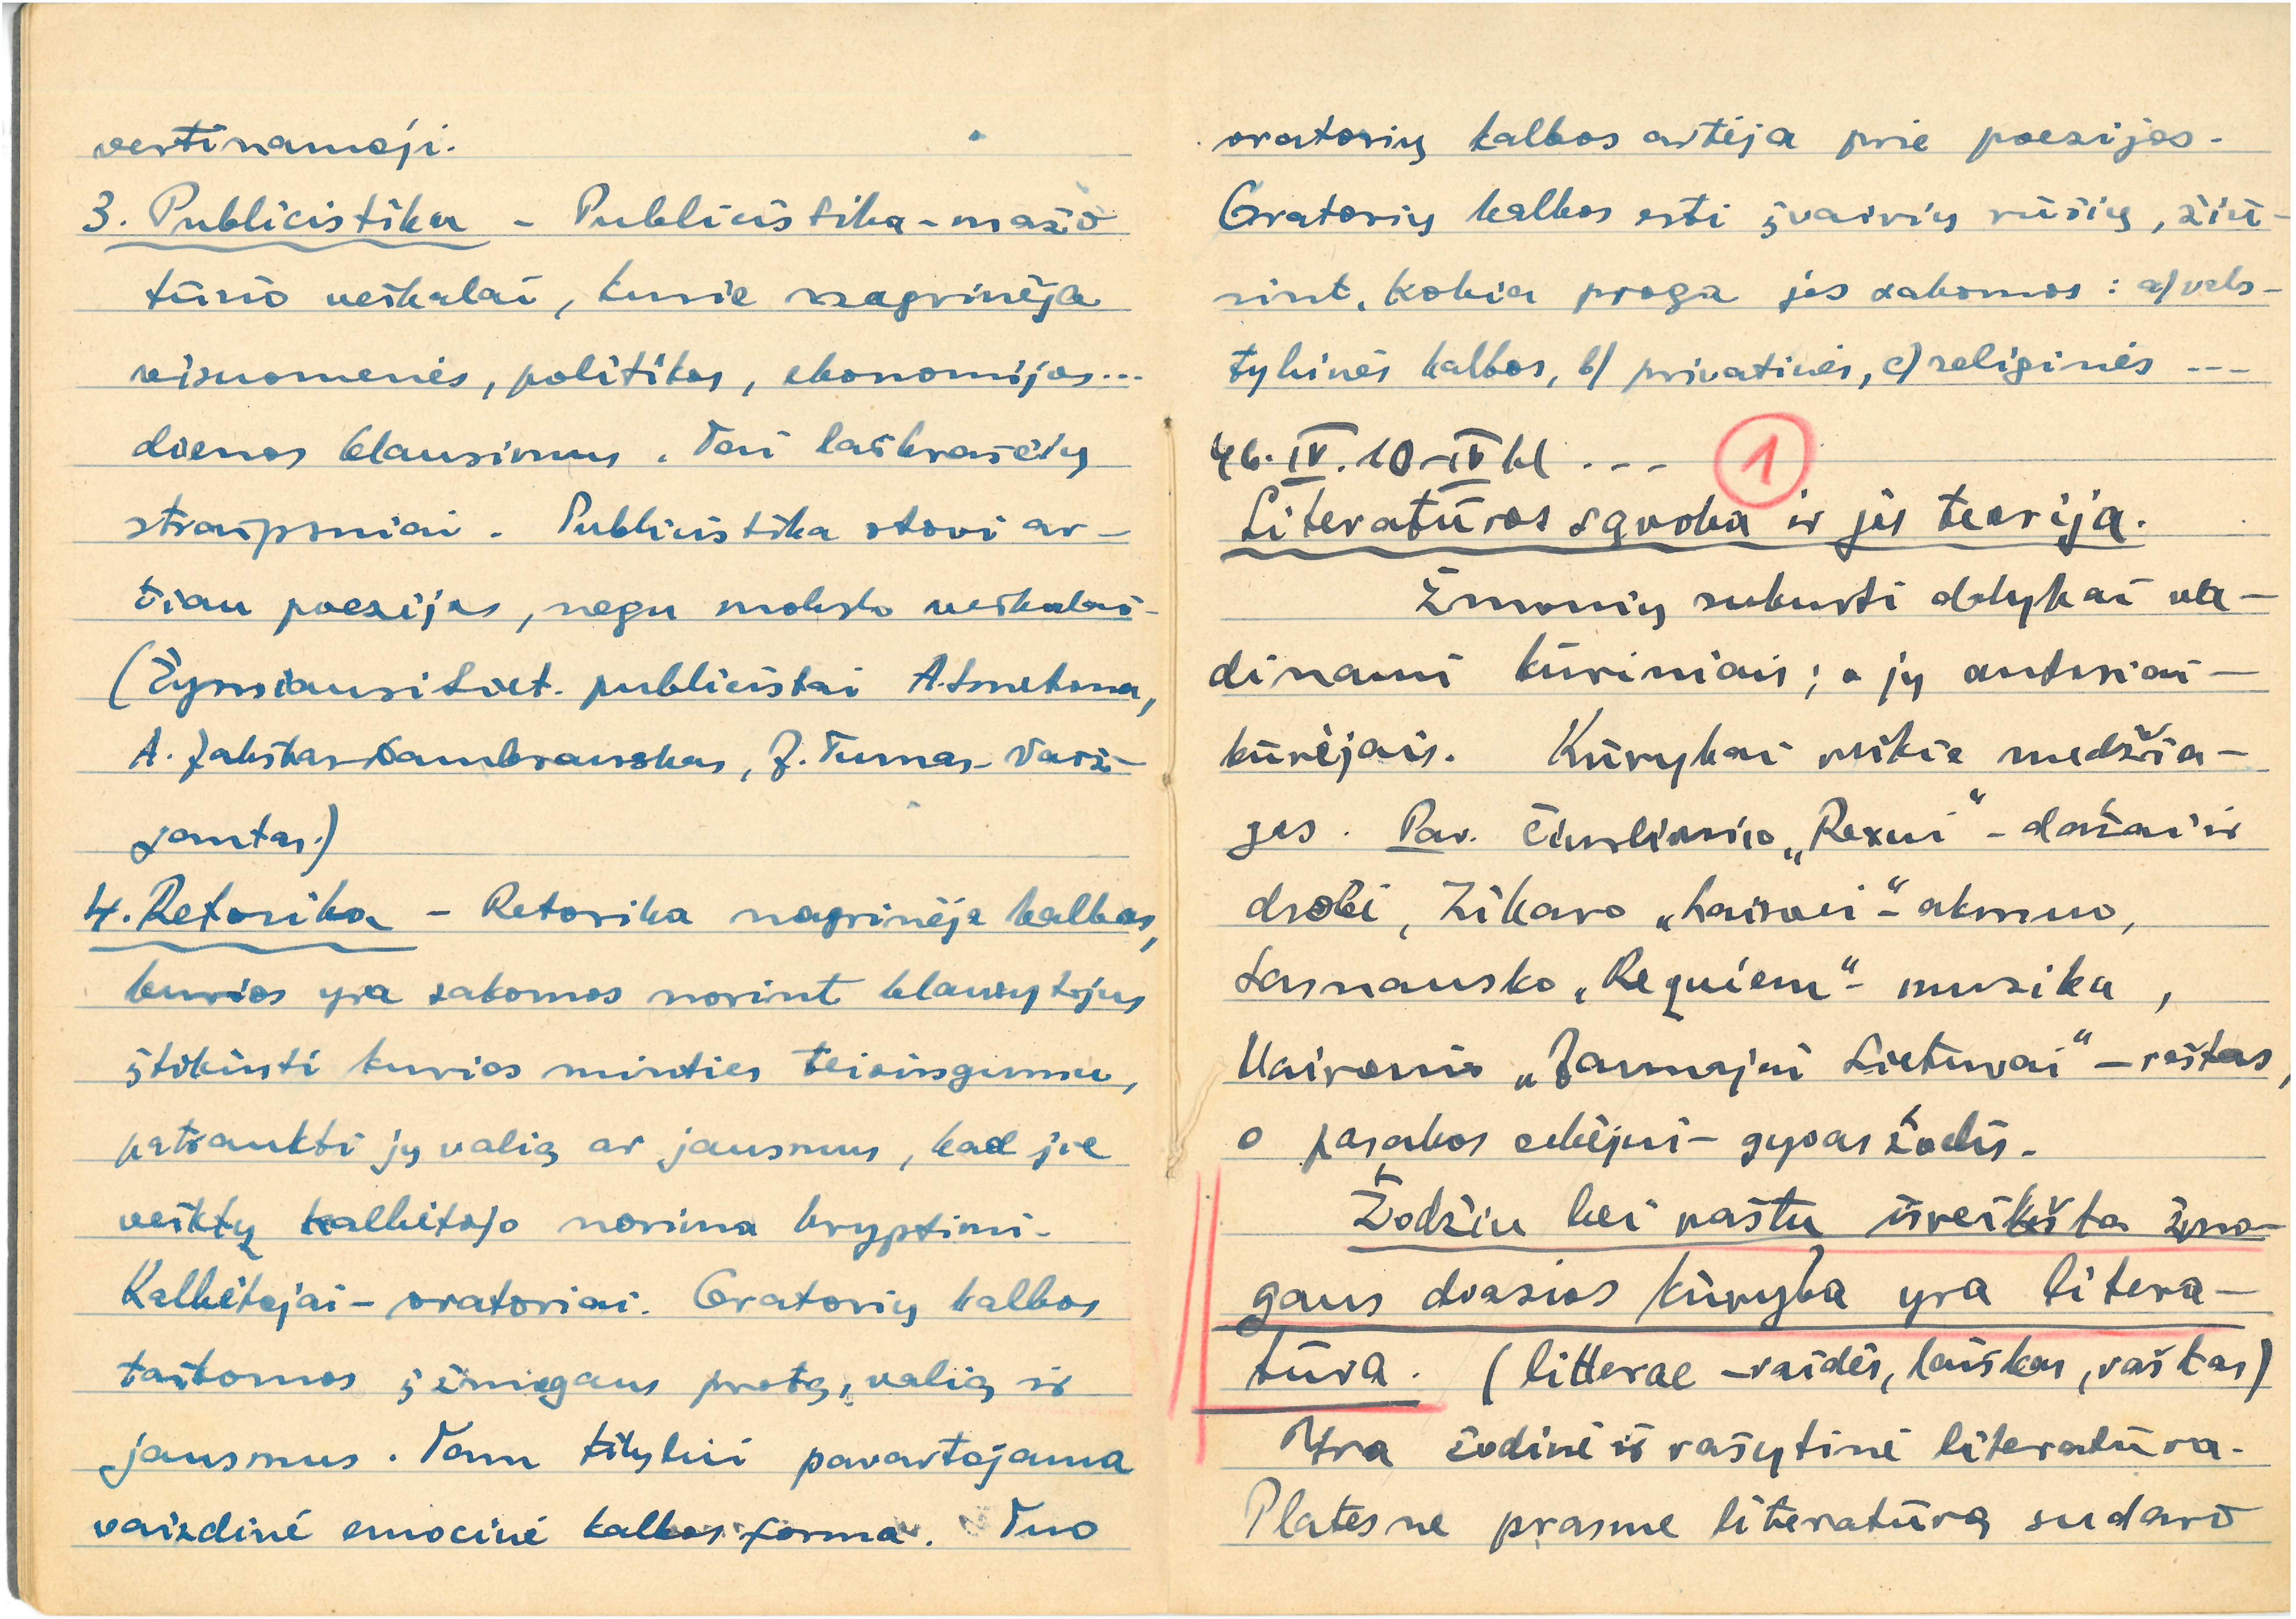 vertinamoji.
3. Publicistika - Publicistika - mažo
tūrio veikalai, kurie nagrinėja
visuomenės, politikos, ekonomijos...
dienos klausimus. Tai laikraščių
straipsniai. Publicistika stovi ar-
čiau poezijos, negu mokslo veikalai-
(Žymiausi Liet. publicistai A. Smetona,
A. Jakštas-Dambrauskas, J. Tumas-Vaiž-
gantas.)
4. Retorika - Retorika nagrinėja kalbas,
kurios yra sakomos norint klausytojus
įtikinti kurios minties teisingumu,
patraukti jų valią ar jausmus, kad jie
veiktų kalbėtojo norima kryptimi.
Kalbėtojai - oratoriai. Oratorių kalbos
taikomos į žmogaus protą, valią ir
jausmus. Tam tikslui pavartojama
vaizdinė emocinė kalbos forma. Tuo
oratorių kalbos artėja prie poezijos.
Oratorių kalbos esti įvairių rūšių, žiū-
rint, kokia proga jos sakomos: a) vals-
tybinės kalbos, b) privatinės, c) religinės ---
46.IV.10-IV kl ... 1
Literatūros sąvoka ir jos teorija.
Žmonių sukurti dalykai va-
dinami kūriniais; o jų autoriai -
kūrėjais. Kūrybai reikia medžia-
gos. Pav. Čiurlionio „Rexui“ - dažai ir
drobė, Zikaro „Laisvei“ - akmuo,
Sasnausko „Requiem“ - muzika,
Maironio „Jaunajai Lietuvai“ - raštas,
o pasakos sekėjui - gyvas žodis.
Žodžiu bei raštu išreikšta žmo-
gaus dvasios kūryba yra litera-
tūra. (litterae - raidės, laiškas, raštas)
Yra žodinė ir rašytinė literatūra.
Platesne prasme literatūrą sudaro